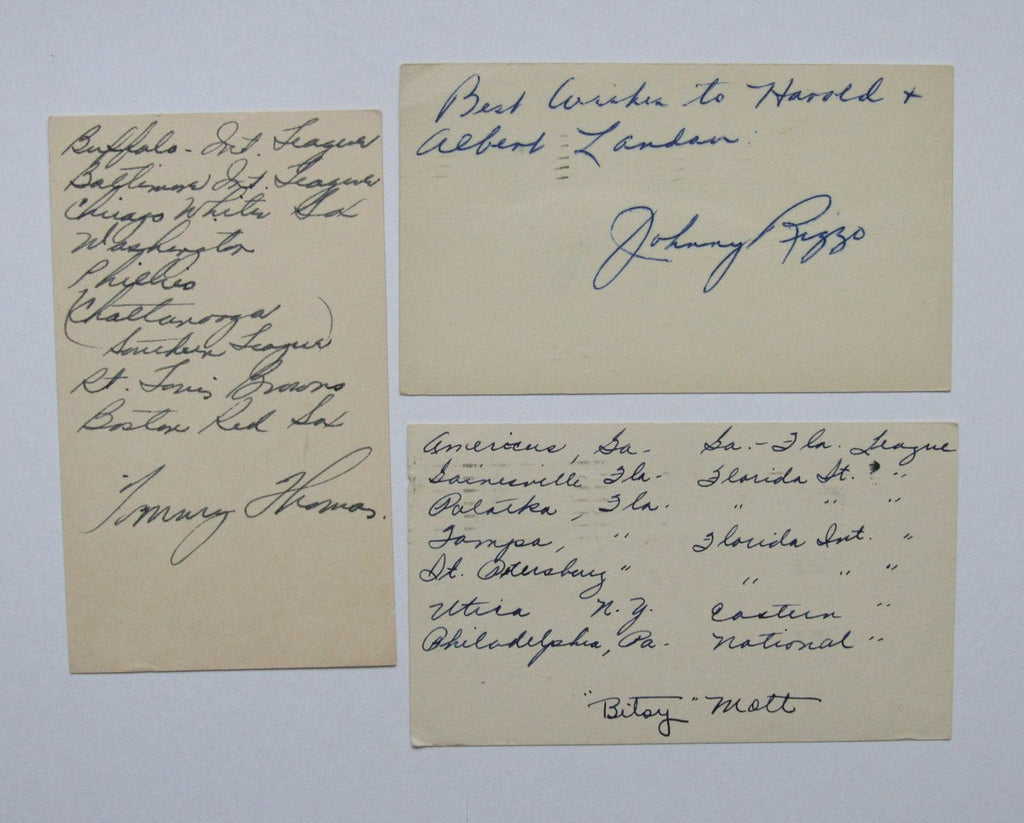 Buffalo - Int. League
Baltimore Int. League
Chicago White Sox
Washington
Phillies
(Chattanooga
Southern League)
St. Louis Browns
Boston Red Sox
Tommy Thomas.
Best Wishes to Harold +
Albert Landau
Johnny Rizzo
Americus, Ga- Ga.- Fla. League
Gainesville Fla- Florida St. "
Palatka, Fla. " " "
Tampa, " Florida Int. "
St. Petersburg " " " "
Utica N.Y. Eastern "
Philadelphia, Pa. National "
"Bitsy" Mott